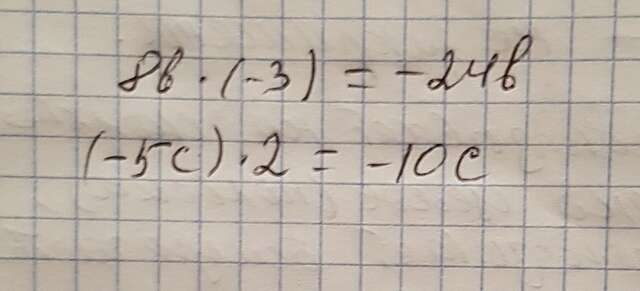 8b · (-3) = -24b
(-5c) · 2 = -10c